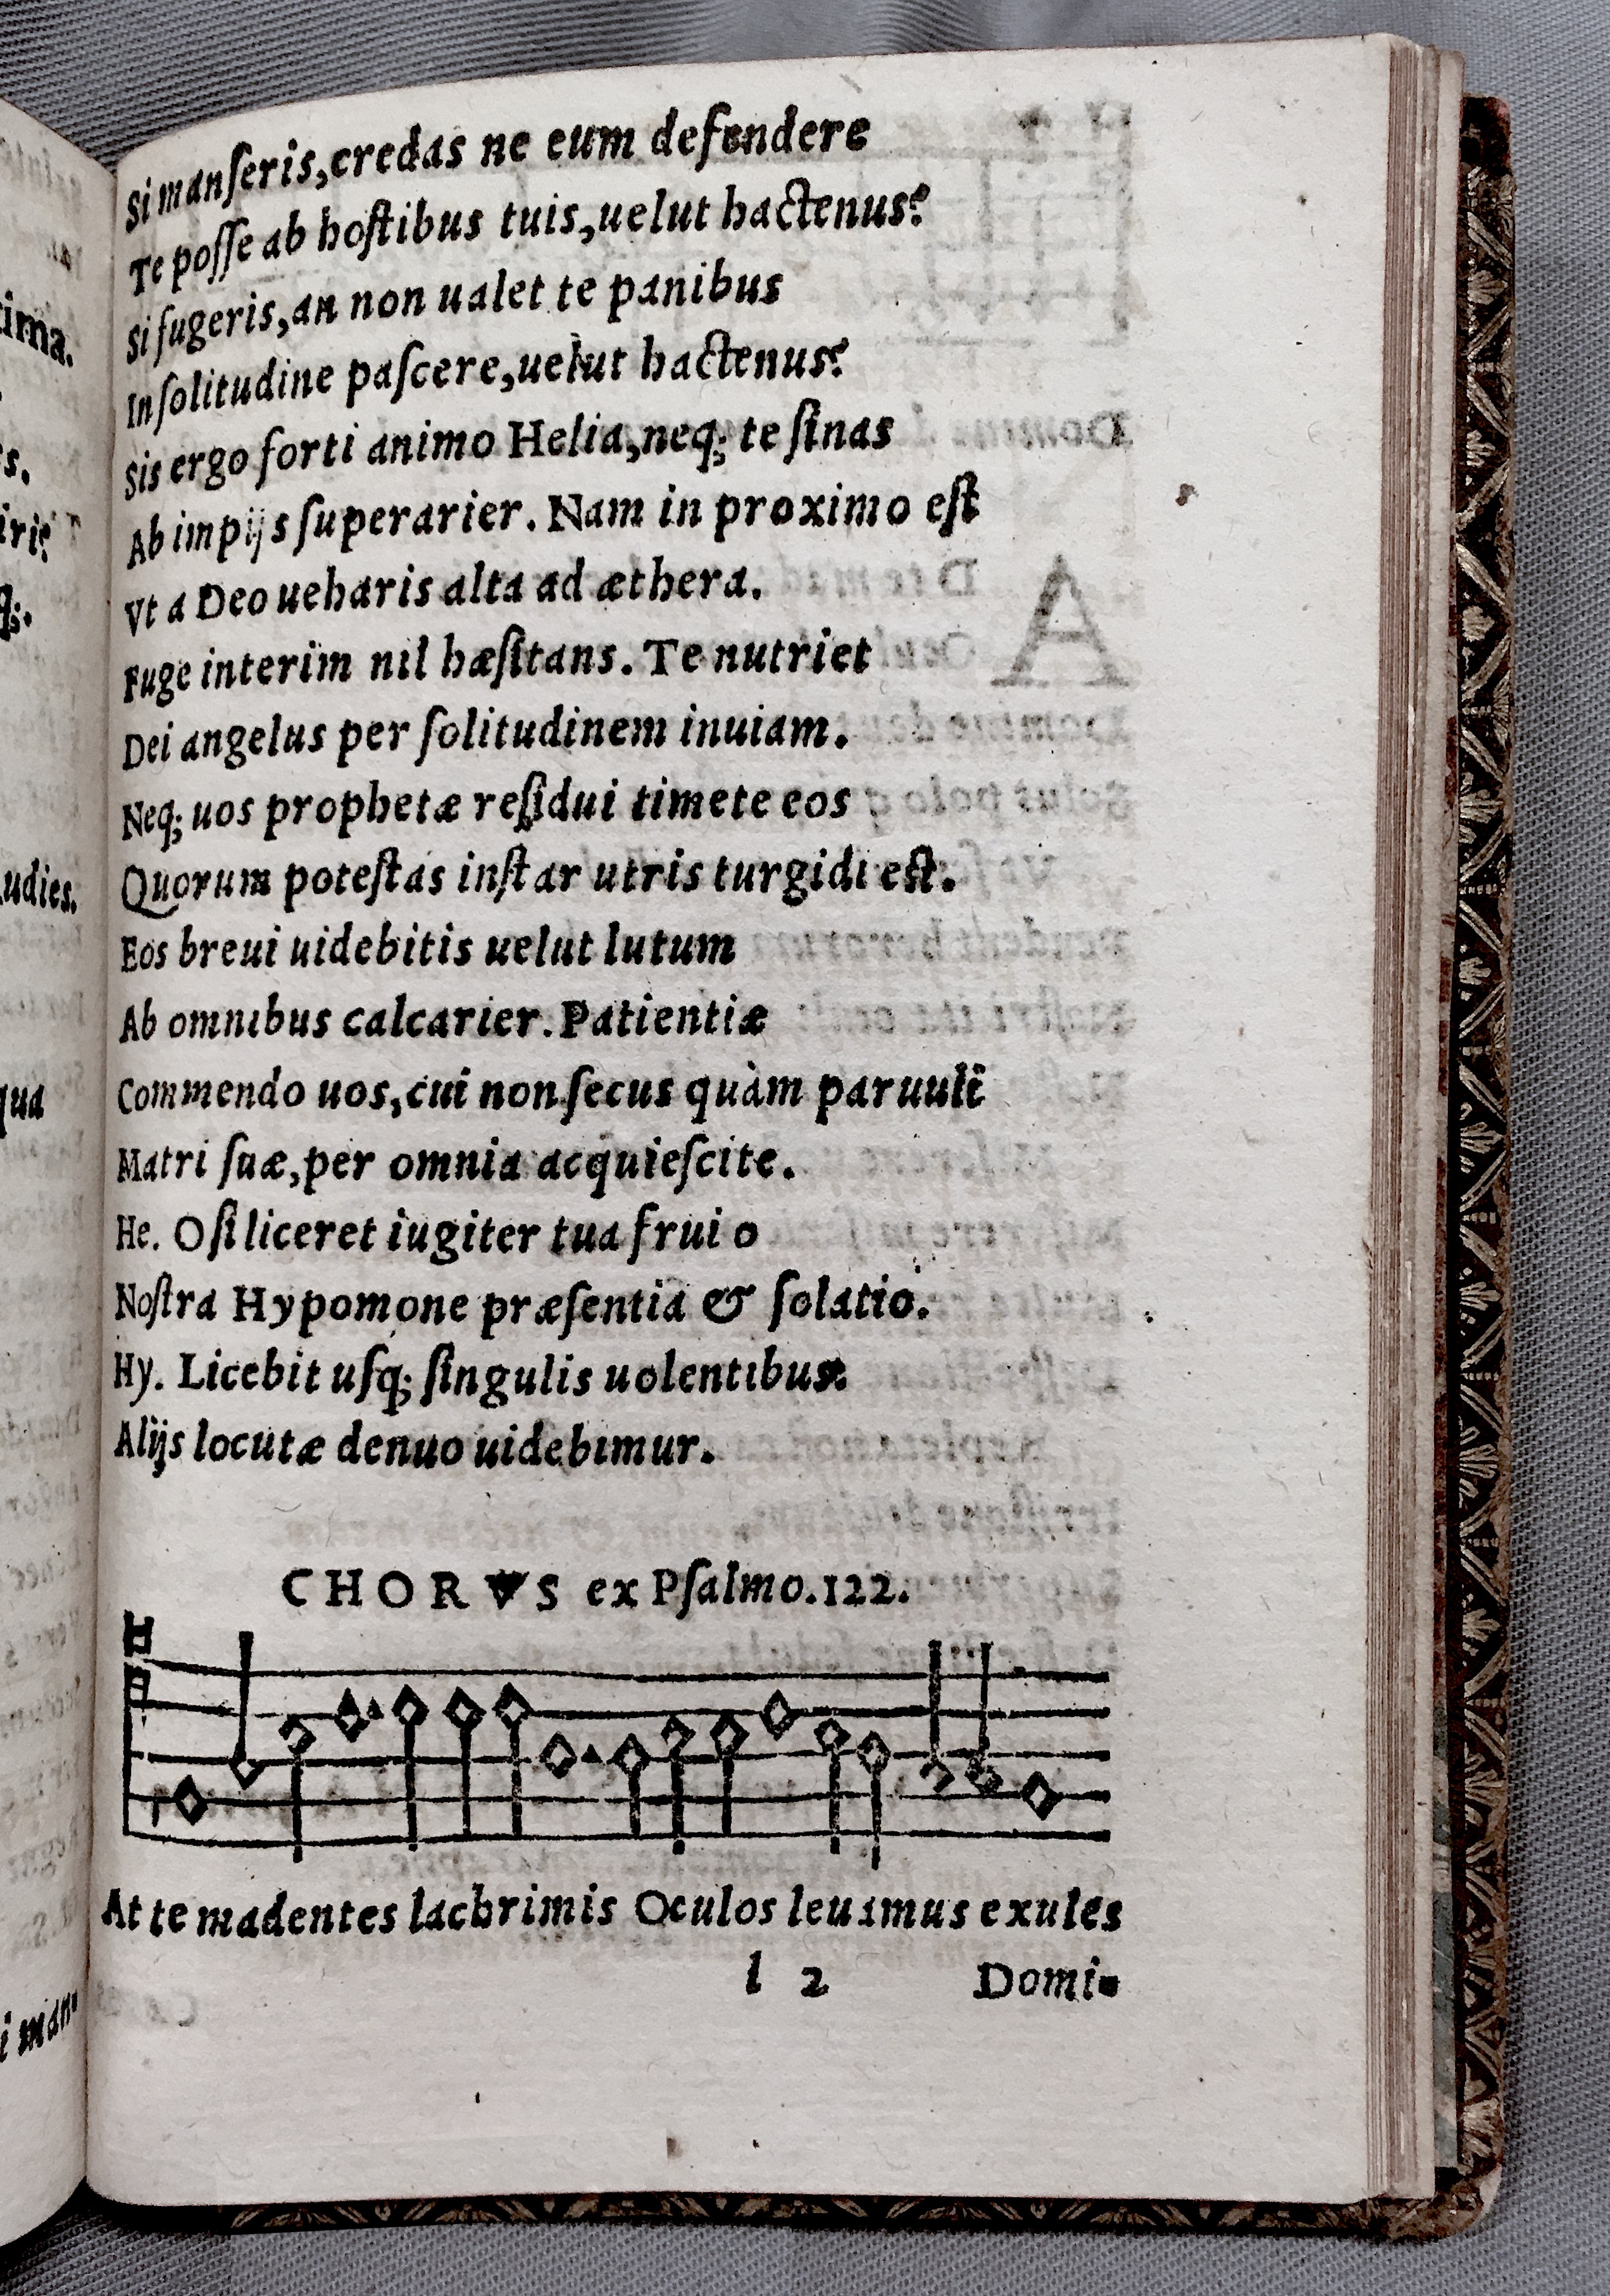 Si manſeris, credas ne eum defendere
Te poſſe ab hoſtibus tuis, uelut hactenus?
Si fugeris, an non ualet te panibus
In ſolitudine paſcere, uelut hactenus?
Sis ergo forti animo Helia, neq; te ſinas
Ab impijs ſuperarier. Nam in proximo eſt
Vt a Deo ueharis alta ad æthera.
Fuge interim nil hæſitans. Te nutriet
Dei angelus per ſolitudinem inuiam.
Neq; uos prophetæ reſidui timete eos
Quorum poteſtas inſtar utris turgidi eſt.
Eos breui uidebitis uelut lutum
Ab omnibus calcarier. Patientiæ
Commendo uos, cui non ſecus quàm paruuli
Matri ſuæ, per omnia acquieſcite.
He. O ſi liceret iugiter tua frui o
Noſtra Hypomone præſentia & ſolatio.
Hy. Licebit uſq; ſingulis uolentibus.
Alijs locutæ denuo uidebimur.
CHORVS ex Pſalmo. 122.
At te madentes lachrimis Oculos leuamus exules
l 2 Domi-
tima.
s.
iri?
q;.
udies.
qua
i man-